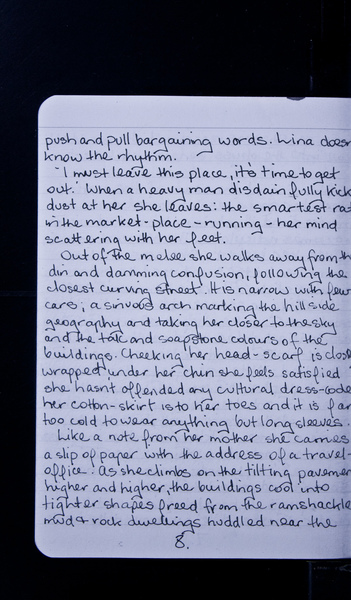 push and pull bargaining words. Lina doesn
know the rhythm.
'I must leave this place, it's time to get
out.' When a heavy man disdainfully kick
dust at her she leaves: the smartest rat
in the market-place - running - her mind
scattering with her feet.
Out of the melee she walks away from th
din and damming confusion, following the
closest curving street. It is narrow with few
cars; a sinuous arch marking the hillside
geography and taking her closer to the sky
and the talc and soapstone colours of the
buildings. Checking her head-scarf is close
wrapped under her chin she feels satisfied
she hasn't offended any cultural dress-code
her cotton-skirt is to her toes and it is far
too cold to wear anything but long sleeves.
Like a note from her mother she carries
a slip of paper with the address of a travel-
office. As she climbs on the tilting pavemen
higher and higher, the buildings cool into
tighter shapes freed from the ramshackle
mud & rock dwellings huddled near the
8.